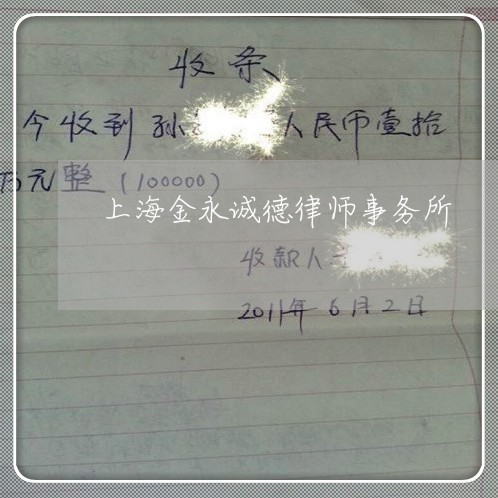 收条
今收到孙 人民币壹拾
万元整（100000）
上海金永诚德律师事务所
收款人
2011年6月2日